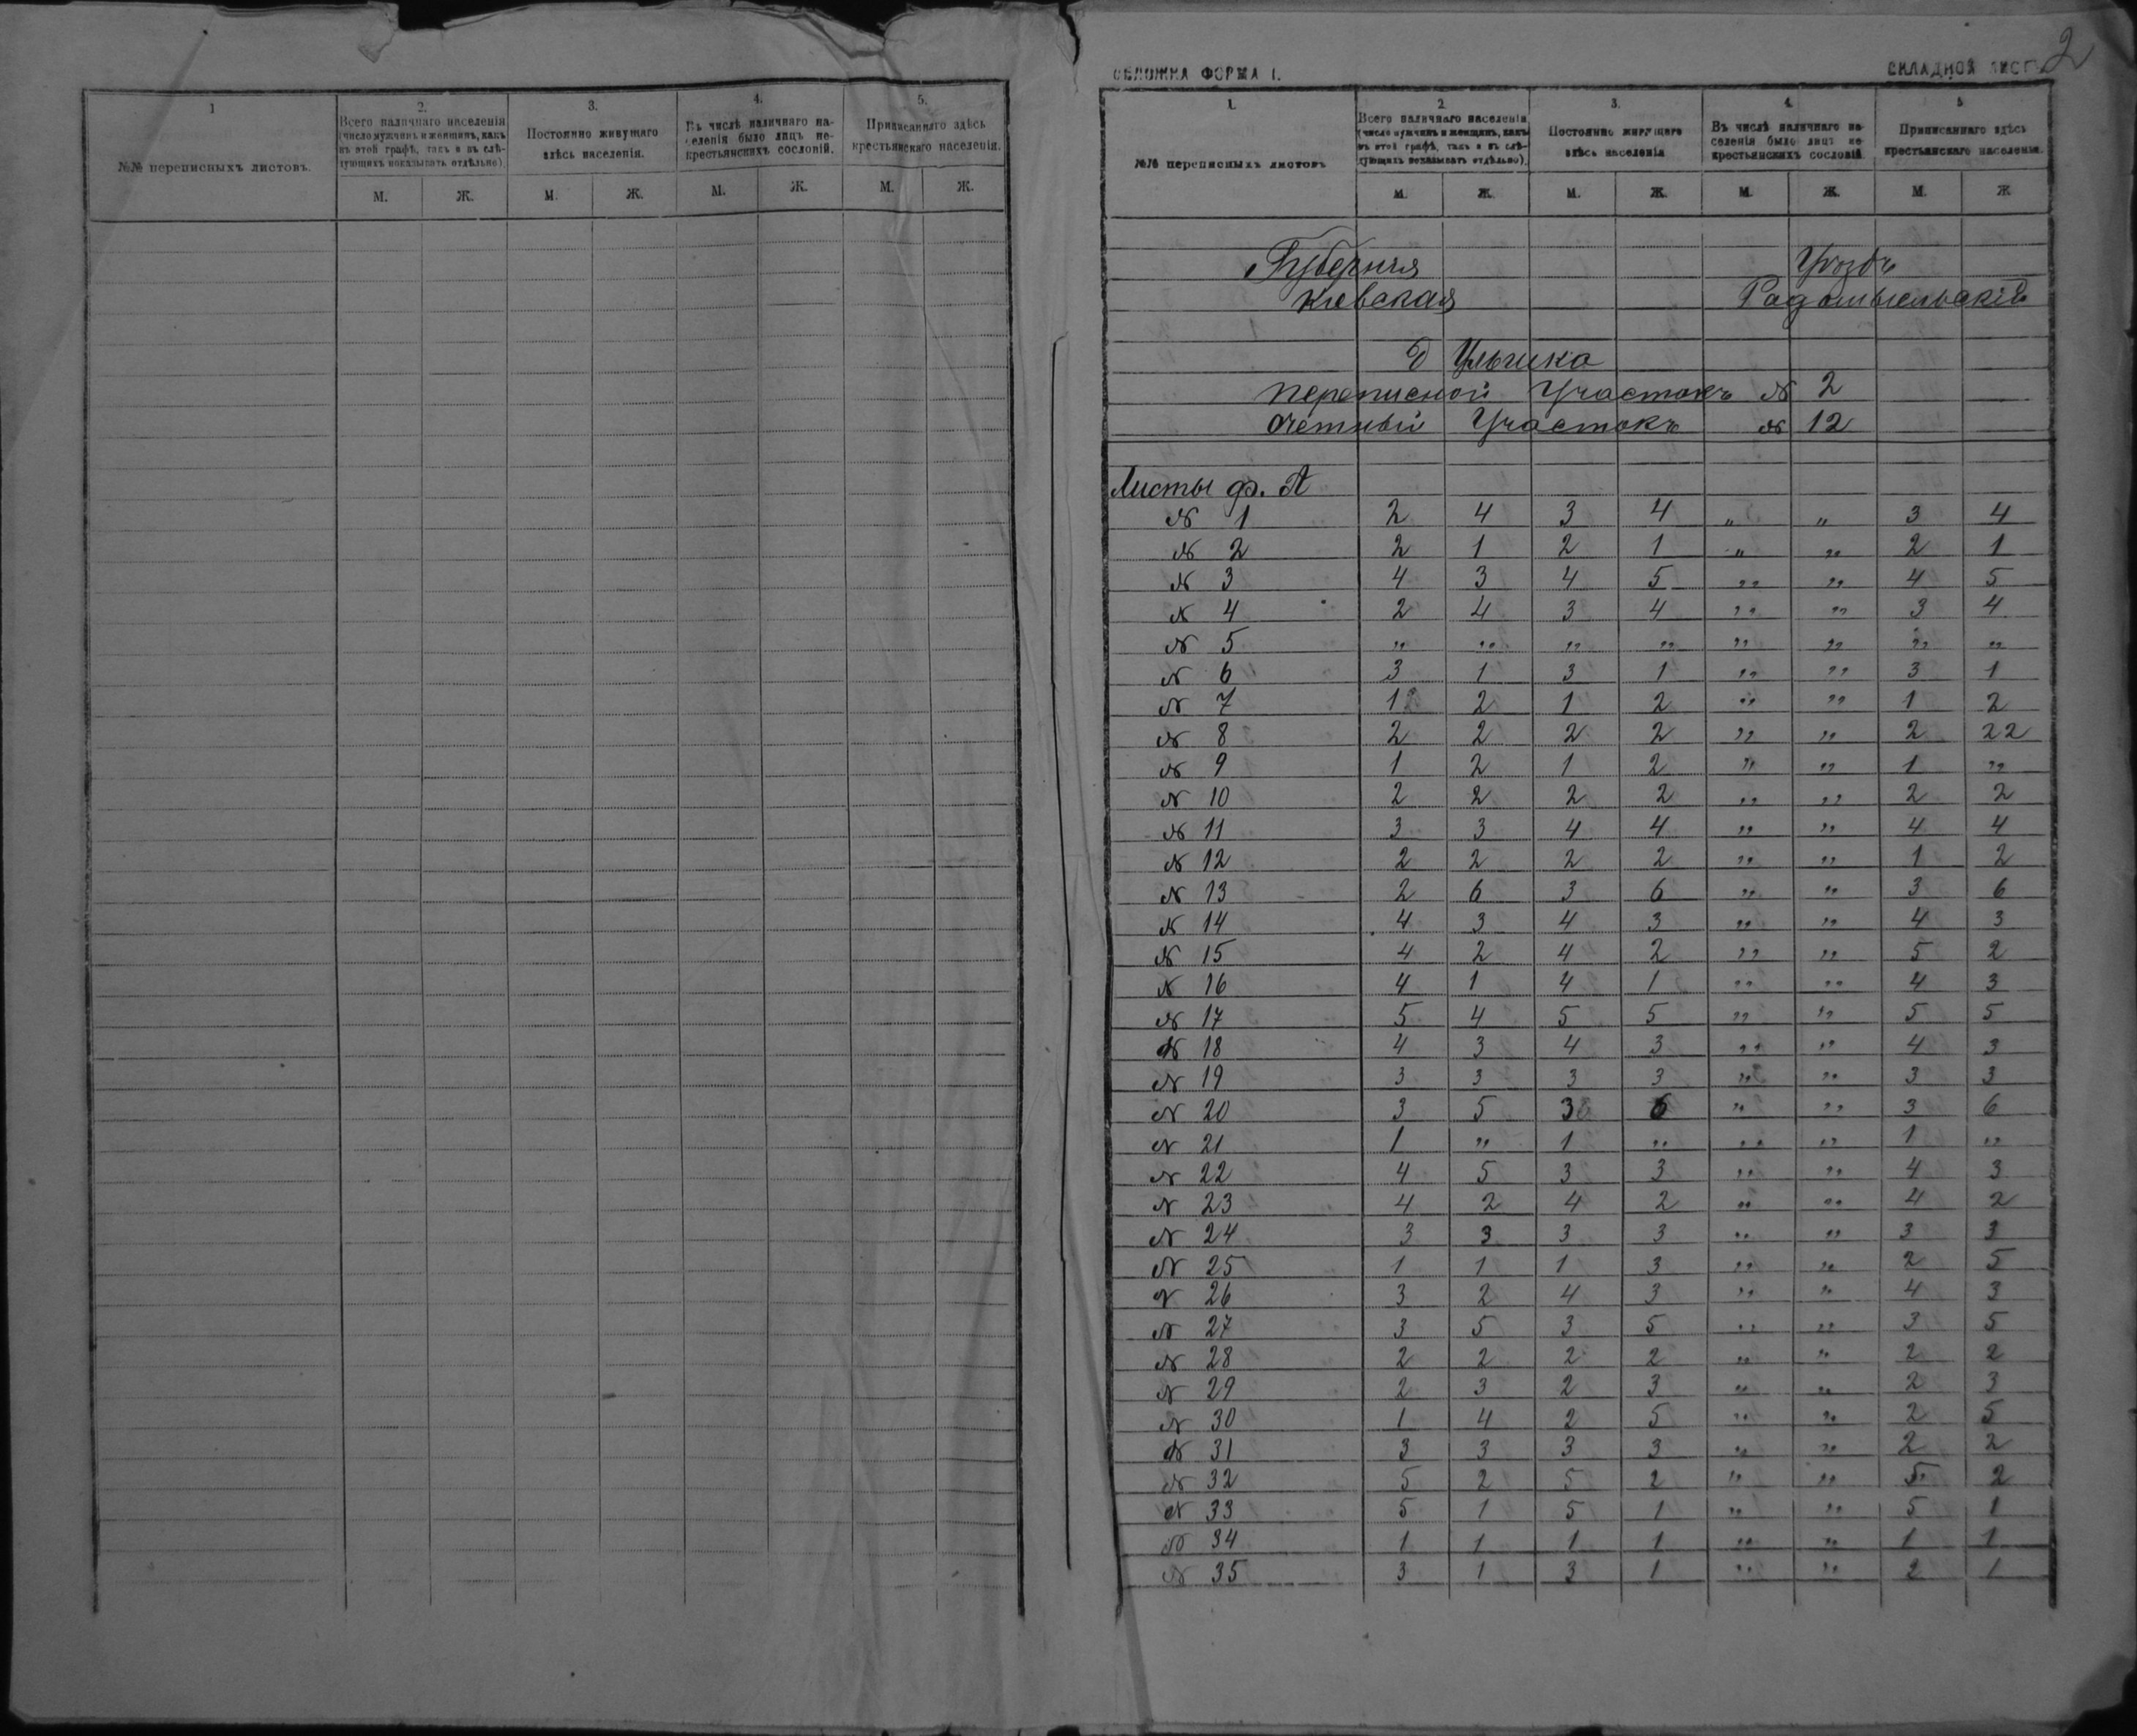 1
2.
3.
4.
5.
№№ переписныхъ листовъ.
Всего наличнаго населенія (число мужчинъ и женщинъ, какъ въ этой графѣ, такъ и въ слѣдующихъ показывать отдѣльно).
Постоянно живущаго здѣсь населенія.
Въ числѣ наличнаго населенія было лицъ некрестьянскихъ сословій.
Приписаннаго здѣсь крестьянскаго населенія.
М. Ж. М. Ж. М. Ж. М. Ж.
2
ОБЛОЖКА ФОРМА 1.
СКЛАДНОЙ ЛИСТЪ
1.
2.
3.
4.
5
№№ переписныхъ листовъ
Всего наличнаго населенія (число мужчинъ и женщинъ, какъ въ этой графѣ, такъ и въ слѣдующихъ показывать отдѣльно).
Постоянно живущаго здѣсь населенія
Въ числѣ наличнаго населенія было лицъ некрестьянскихъ сословій
Приписаннаго здѣсь крестьянскаго населенія.
М. Ж. М. Ж. М. Ж. М. Ж
Губернія Уѣздъ
Кіевская Радомысльскій
Переписной Участокъ № 2
Счетный Участокъ № 12
Листы ф. А
№ 1 2 4 3 4 „ „ 3 4
№ 2 2 1 2 1 „ „ 2 1
№ 3 4 3 4 5 „ „ 4 5
№ 4 2 4 3 4 „ „ 3 4
№ 5 „ „ „ „ „ „ „ „
№ 6 3 1 3 1 „ „ 3 1
№ 7 1 2 1 2 „ „ 1 2
№ 8 2 2 2 2 „ „ 2 22
№ 9 1 2 1 2 „ „ 1 „
№ 10 2 2 2 2 „ „ 2 2
№ 11 3 3 4 4 „ „ 4 4
№ 12 2 2 2 2 „ „ 1 2
№ 13 2 6 3 6 „ „ 3 6
№ 14 4 3 4 3 „ „ 4 3
№ 15 4 2 4 2 „ „ 5 2
№ 16 4 1 4 1 „ „ 4 3
№ 17 5 4 5 5 „ „ 5 5
№ 18 4 3 4 3 „ „ 4 3
№ 19 3 3 3 3 „ „ 3 3
№ 20 3 5 3 6 „ „ 3 6
№ 21 1 „ 1 „ „ „ 1 „
№ 22 4 5 3 3 „ „ 4 3
№ 23 4 2 4 2 „ „ 4 2
№ 24 3 3 3 3 „ „ 3 3
№ 25 1 1 1 3 „ „ 2 5
№ 26 3 2 4 3 „ „ 4 3
№ 27 3 5 3 5 „ „ 3 5
№ 28 2 2 2 2 „ „ 2 2
№ 29 2 3 2 3 „ „ 2 3
№ 30 1 4 2 5 „ „ 2 5
№ 31 3 3 3 3 „ „ 2 2
№ 32 5 2 5 2 „ „ 5 2
№ 33 5 1 5 1 „ „ 5 1
№ 34 1 1 1 1 „ „ 1 1
№ 35 3 1 3 1 „ „ 2 1